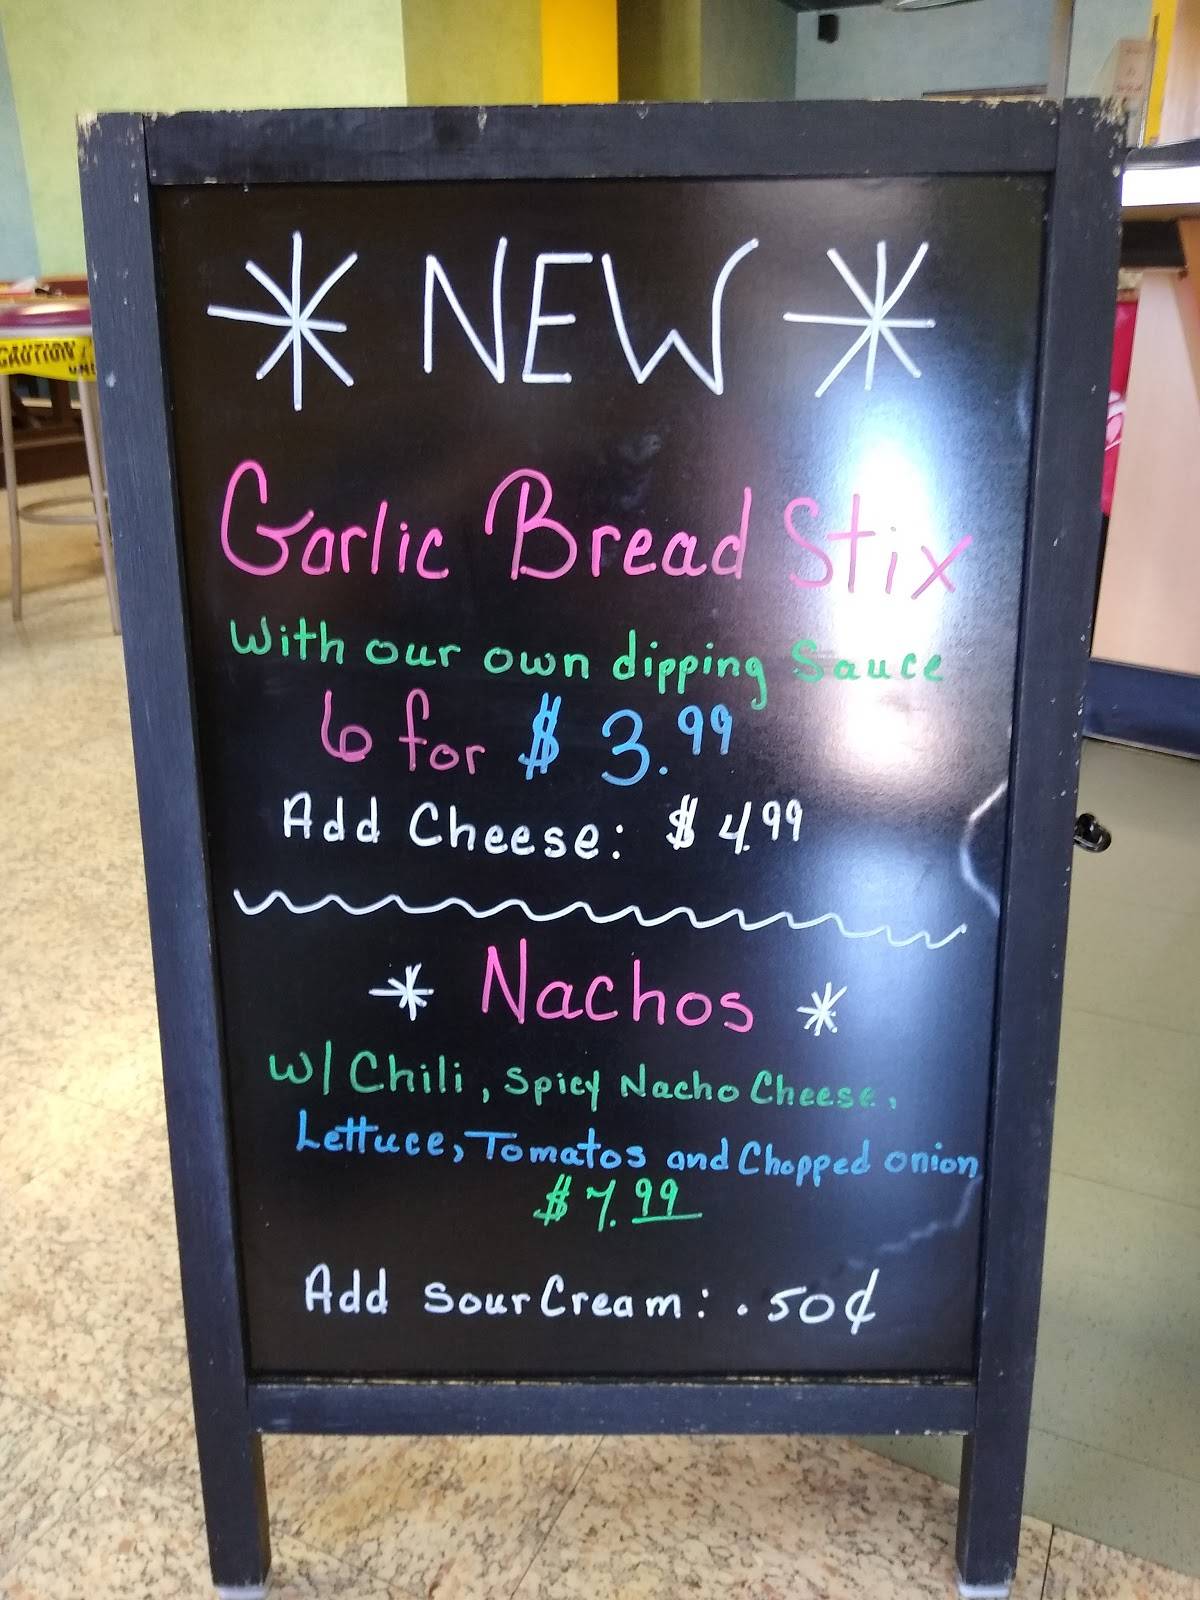 * NEW *
Garlic Bread Stix
With our own dipping Sauce
6 for $ 3.99
Add Cheese: $ 4.99
* Nachos *
w/ Chili, Spicy Nacho Cheese,
Lettuce, Tomatos and Chopped onion
$ 7.99
Add Sour Cream: .50¢
CAUTION